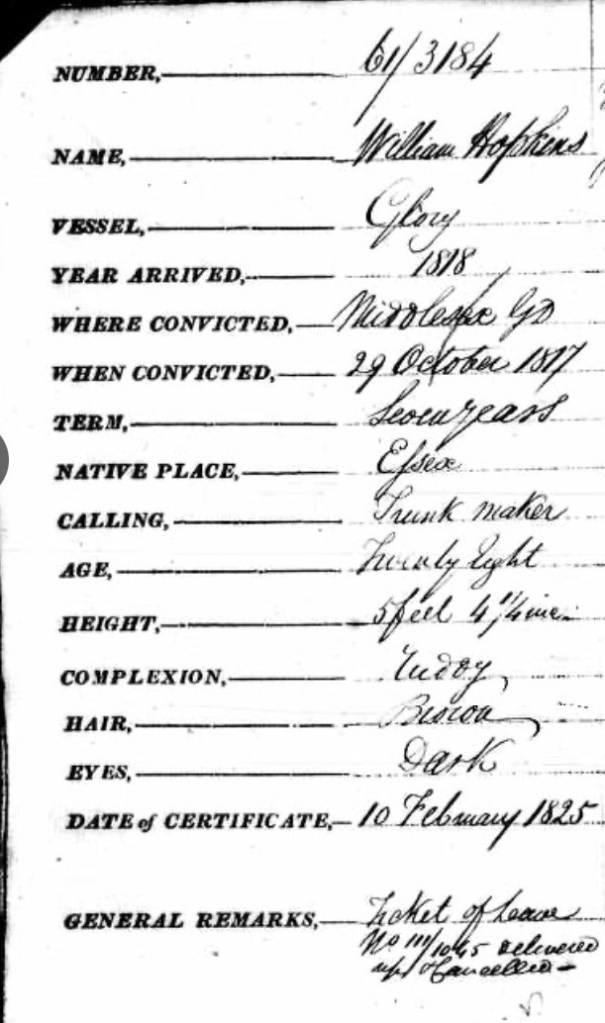 NUMBER, 61/3184
NAME, William Hopkins
VESSEL, Glory
YEAR ARRIVED, 1818
WHERE CONVICTED, Middlesex GD
WHEN CONVICTED, 29 October 1817
TERM, Seven years
NATIVE PLACE, Essex
CALLING, Trunk maker
AGE, Twenty Eight
HEIGHT, 5 feet 4 1/4 inc
COMPLEXION, Ruddy,
HAIR, Brown
EYES, Dark
DATE of CERTIFICATE, 10 February 1825
GENERAL REMARKS, Ticket of Leave
No delivered
up & Cancelled